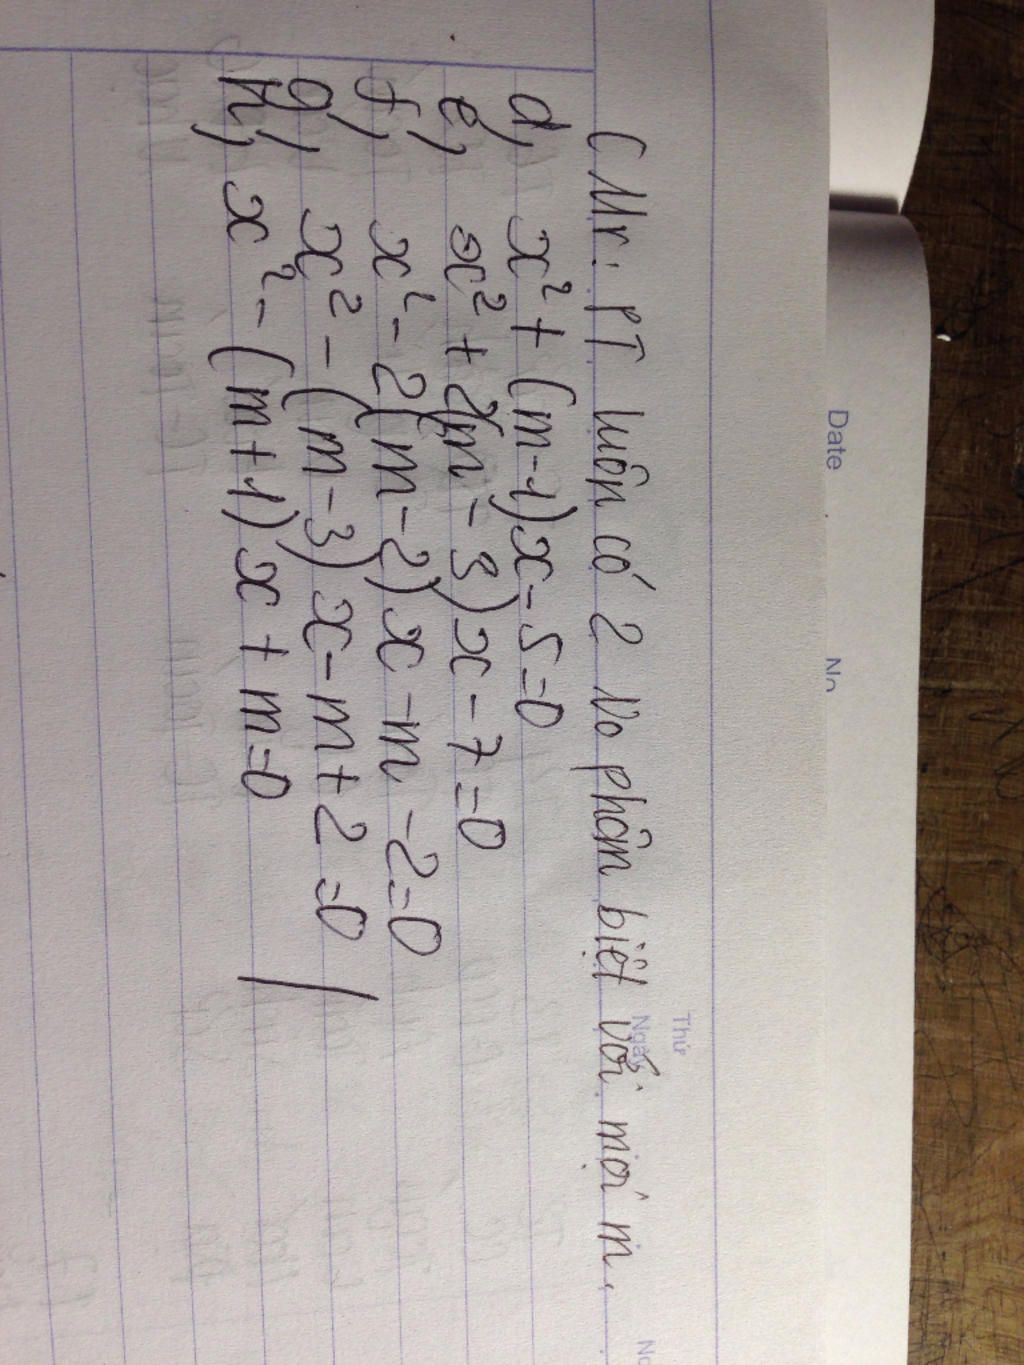 Date
No
Thứ
Ngày
No
CMr: PT luôn có 2 No phân biệt với mọi m.
d, x² + (m-1)x - 5 = 0
e, x² + 2(m - 3)x - 7 = 0
f, x² - 2(m - 2)x - m - 2 = 0
g, x² - (m - 3)x - m + 2 = 0
h, x² - (m + 1)x + m = 0